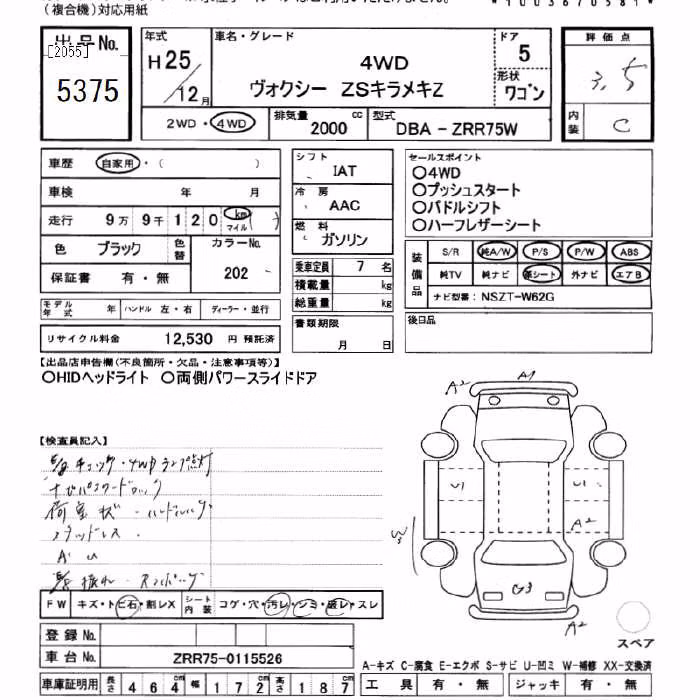 (複合機)対応用紙
出品No. 年式 車名・グレード ドア 評価点
[2055]
5375 H25/12月 4WD 5 3.5
ヴォクシー ZSキラメキZ 形状 ワゴン
2WD・4WD 排気量 2000 cc 型式 DBA-ZRR75W 内装 C
車歴 自家用・( )
車検 年 月
走行 9万 9千 1 2 0 km マイル
色 ブラック 色替 カラーNo. 202
保証書 有・無
モデル年式 年 ハンドル 左・右 ディーラー・並行
リサイクル料金 12,530 円 預託済
シフト IAT
冷房 AAC
燃料 ガソリン
乗車定員 7 名
積載量 kg
総重量 kg
書類期限
月 日
セールスポイント
○4WD
○プッシュスタート
○パドルシフト
○ハーフレザーシート
装備品 S/R 純A/W P/S P/W ABS
純TV 純ナビ 革シート 外ナビ エアB
ナビ型番: NSZT-W62G
後日品
【出品店申告欄(不良箇所・欠品・注意事項等)】
○HIDヘッドライト ○両側パワースライドドア
【検査員記入】
A2 A1
U1 U1
A2
W3
G3
A2
スペア
FW キズ・トビ石・割レX シート内装 コゲ・穴・汚レ・シミ・破レ・スレ
登録No.
車台No. ZRR75-0115526
車庫証明用 長さ 464cm 幅 172cm 高さ 187cm
A-キズ C-腐食 E-エクボ S-サビ U-凹ミ W-補修 XX-交換済
工具 有・無 ジャッキ 有・無